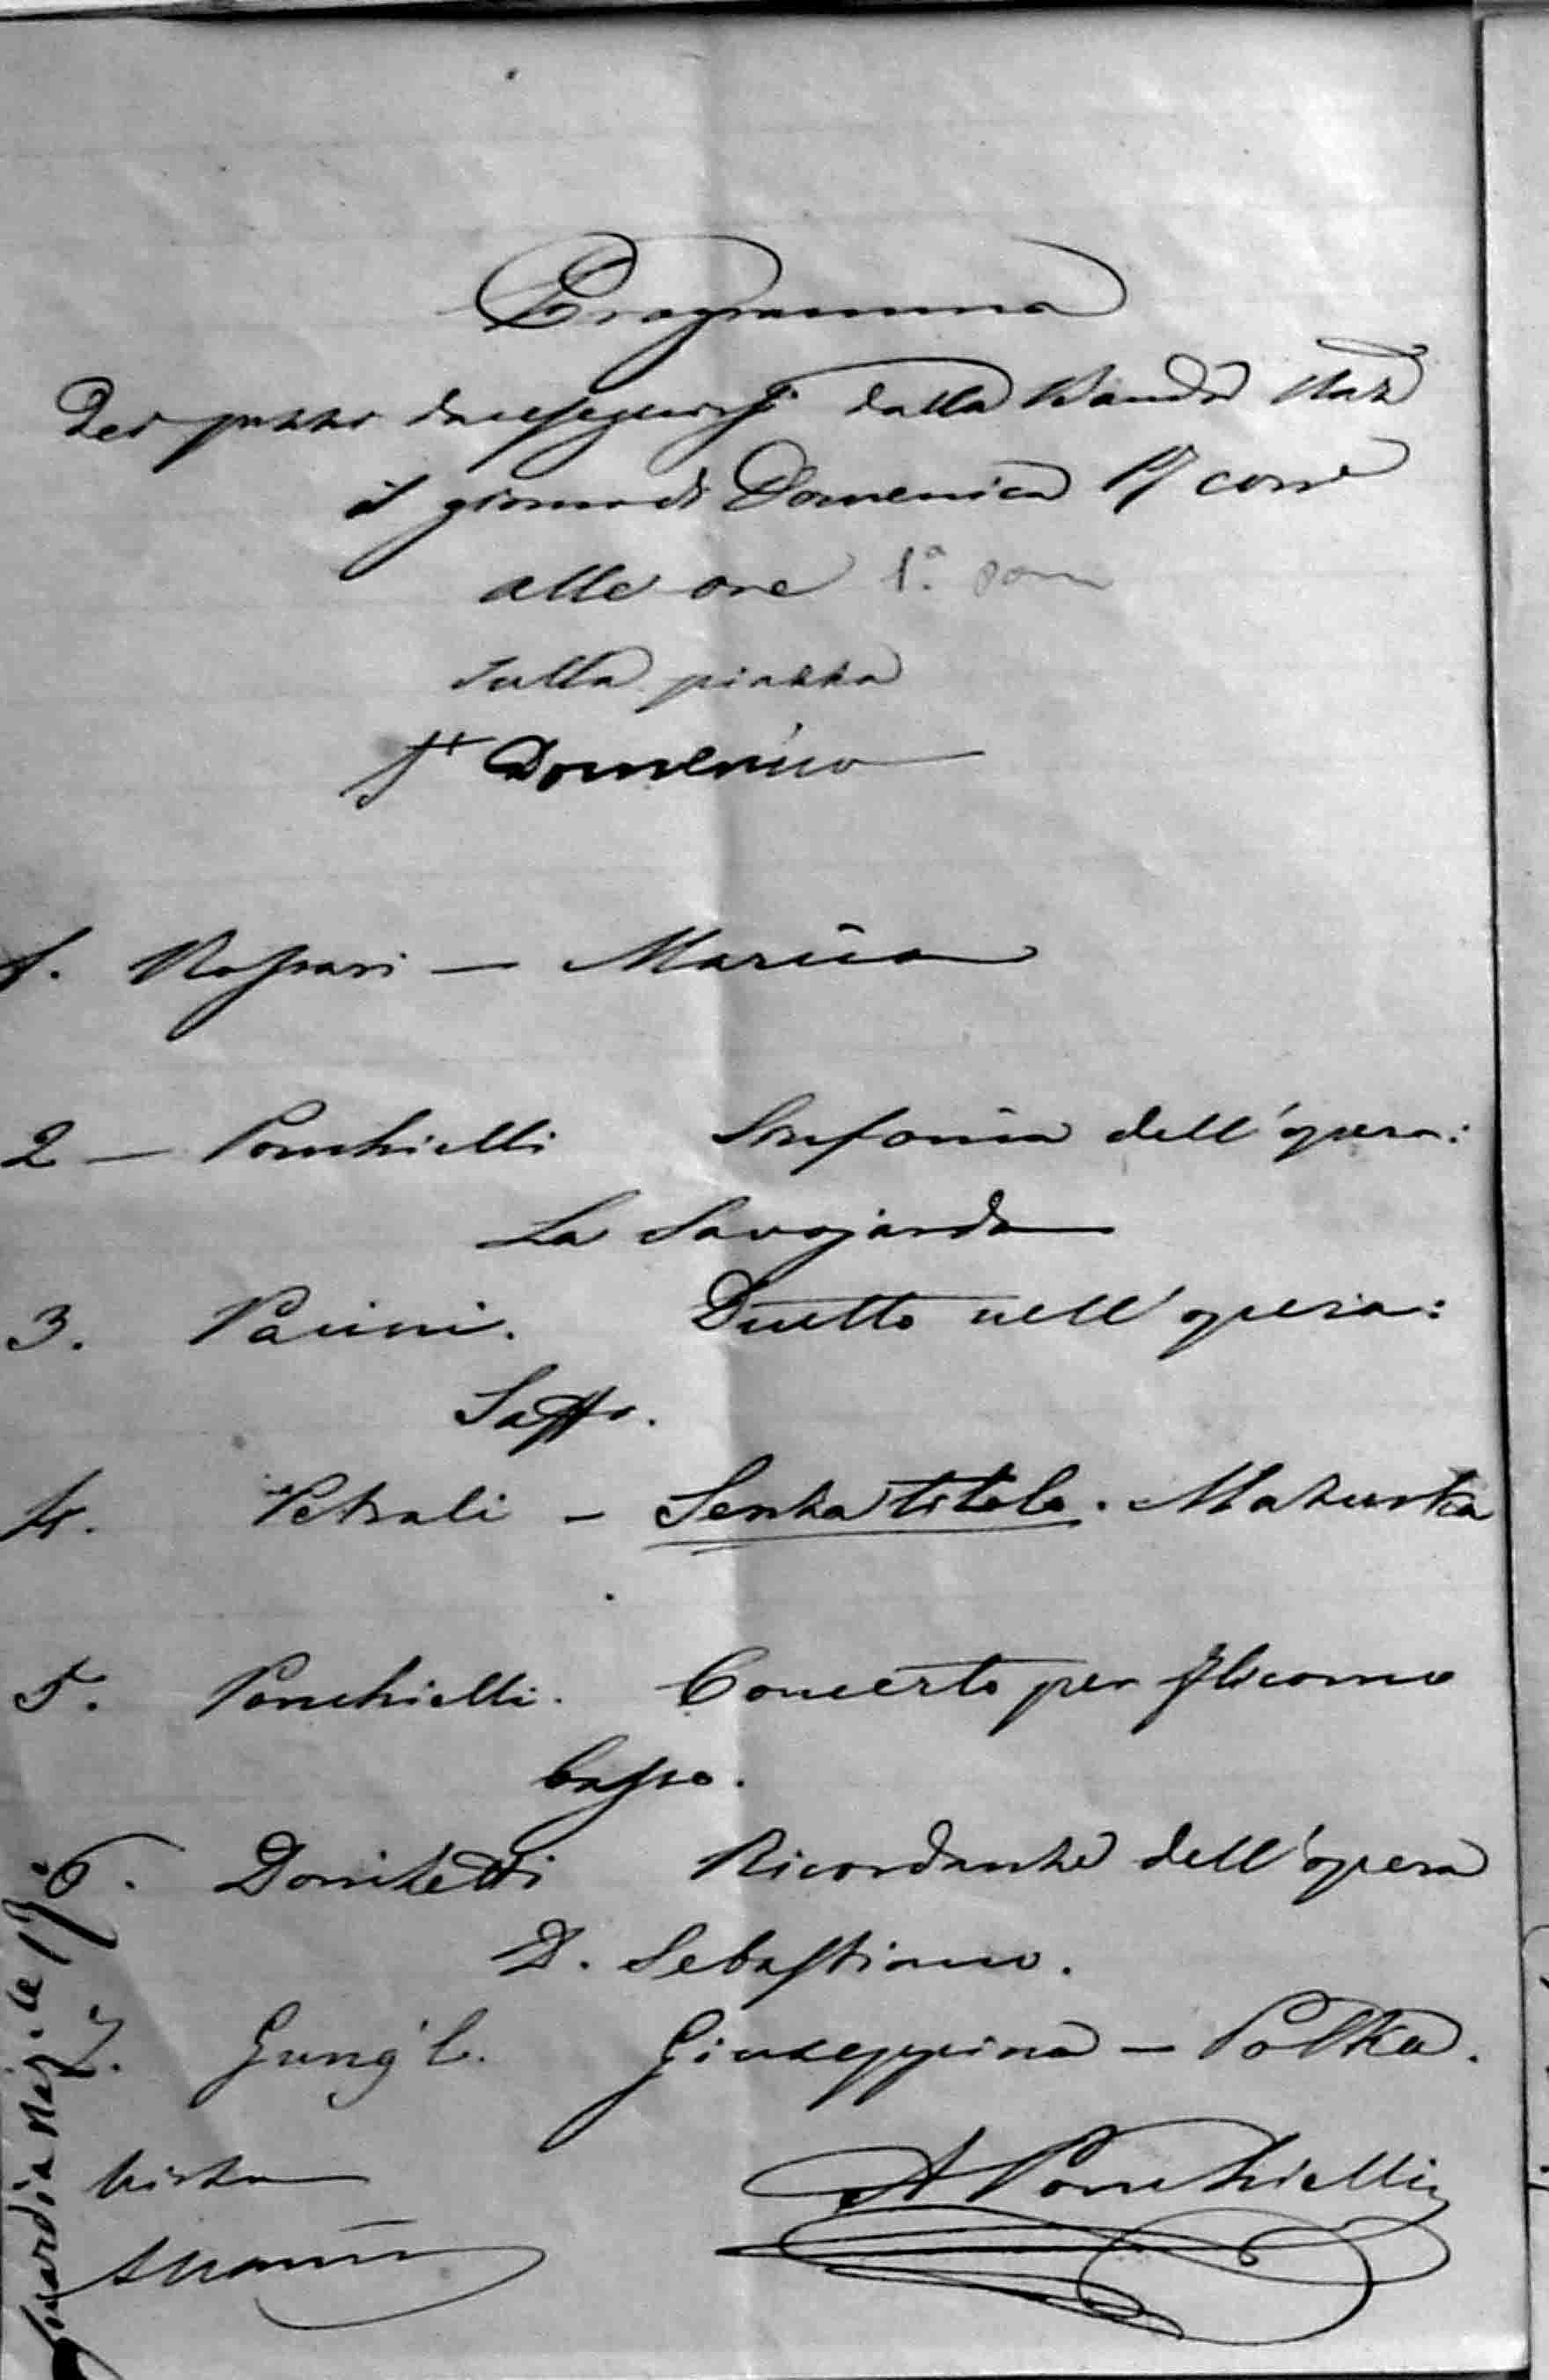 Programma
Dei pezzi da eseguirsi dalla Banda Naz
il giorno di Domenica 17 corre
alle ore 1.a pom
sulla piazza
Sn Domenico
1. Rossari — Marcia
2 — Ponchielli Sinfonia dell'opera:
La Savojarda
3. Pacini. Duetto nell'opera:
Saffo.
4. Petrali – Senza titolo. Mazurka
5. Ponchielli. Concerto per flicorno
basso.
6. Donizetti Ricordanze dell'opera
D. Sebastiano.
7. Gung'l. Giuseppina – Polka.
Visto
A Ponchielli
Guardia Naz.le